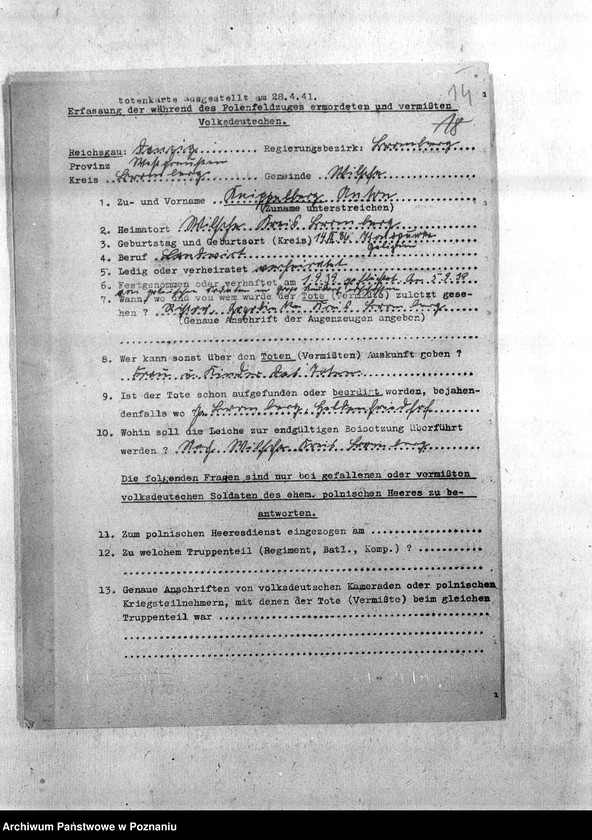 14
18
totenkarte ausgestellt am 28.4.41.
Erfassung der während des Polenfeldzuges ermordeten und vermißten
Volksdeutschen.
Reichsgau: Danzig Regierungsbezirk: Bromberg
Provinz Westpreußen
Kreis Bromberg Gemeinde Wilsche
1. Zu- und Vorname Anton
(Zuname unterstreichen)
2. Heimatort Wilsche Kreis Bromberg
3. Geburtstag und Geburtsort (Kreis)
4. Beruf Landwirt
5. Ledig oder verheiratet verheiratet
6. Festgenommen oder verhaftet am 1.9.39 geflüchtet. Am 5.9.39
7. Wann, wo und von wem wurde der Tote (Vermißte) zuletzt gese-
hen ? Kreis Bromberg
(Genaue Anschrift der Augenzeugen angeben)
8. Wer kann sonst über den Toten (Vermißten) Auskunft geben ?
Frau u. Kinder des Toten
9. Ist der Tote schon aufgefunden oder beerdigt worden, bejahen-
denfalls wo Ja Bromberg, Heldenfriedhof
10. Wohin soll die Leiche zur endgültigen Beisetzung überführt
werden ? Nach Wilsche Kreis Bromberg
Die folgenden Fragen sind nur bei gefallenen oder vermißten
volksdeutschen Soldaten des ehem. polnischen Heeres zu be-
antworten.
11. Zum polnischen Heeresdienst eingezogen am
12. Zu welchem Truppenteil (Regiment, Batl., Komp.) ?
13. Genaue Anschriften von volksdeutschen Kameraden oder polnischen
Kriegsteilnehmern, mit denen der Tote (Vermißte) beim gleichen
Truppenteil war
Archiwum Państwowe w Poznaniu